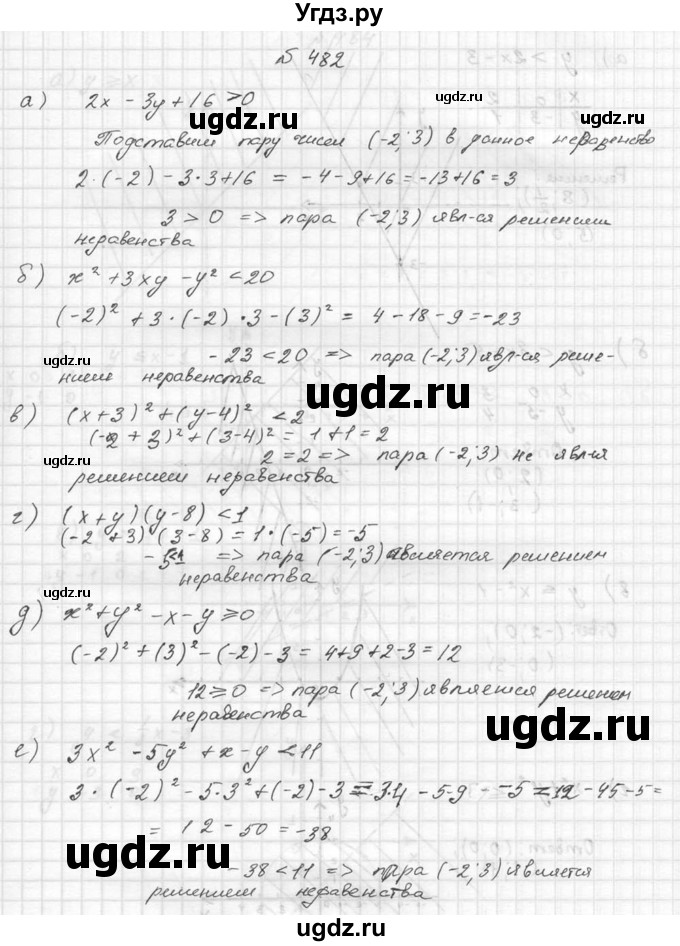 Угдз.ру
№ 482
а) 2x - 3y + 16 > 0
ugdz.ru
Подставим пару чисел (-2; 3) в данное неравенство
2·(-2) - 3·3 + 16 = -4 - 9 + 16 = -13 + 16 = 3
ugdz.ru
3 > 0 => пара (-2; 3) явл-ся решением
неравенства
б) x² + 3xy - y² < 20
(-2)² + 3·(-2)·3 - (3)² = 4 - 18 - 9 = -23
ugdz.ru
-23 < 20 => пара (-2; 3) явл-ся реше-
нием неравенства
ugdz.ru
в) (x+3)² + (y-4)² < 2
(-2 + 3)² + (3-4)² = 1 + 1 = 2
ugdz.ru
2 = 2 => пара (-2; 3) не явл-я
решением неравенства
г) (x+y)(y-8) < 1
(-2 + 3)(3 - 8) = 1·(-5) = -5
-5<1 => пара (-2; 3) является решением
неравенства
ugdz.ru
д) x² + y² - x - y ⩾ 0
(-2)² + (3)² - (-2) - 3 = 4 + 9 + 2 - 3 = 12
ugdz.ru
12 ⩾ 0 => пара (-2; 3) является решением
неравенства
ugdz.ru
е) 3x² - 5y² + x - y < 11
3·(-2)² - 5·3² + (-2) - 3 = 3·4 - 5·9 - 5 = 12 - 45 - 5 =
= 12 - 50 = -38
ugdz.ru
-38 < 11 => пара (-2; 3) является
решением неравенства
ugdz.ru